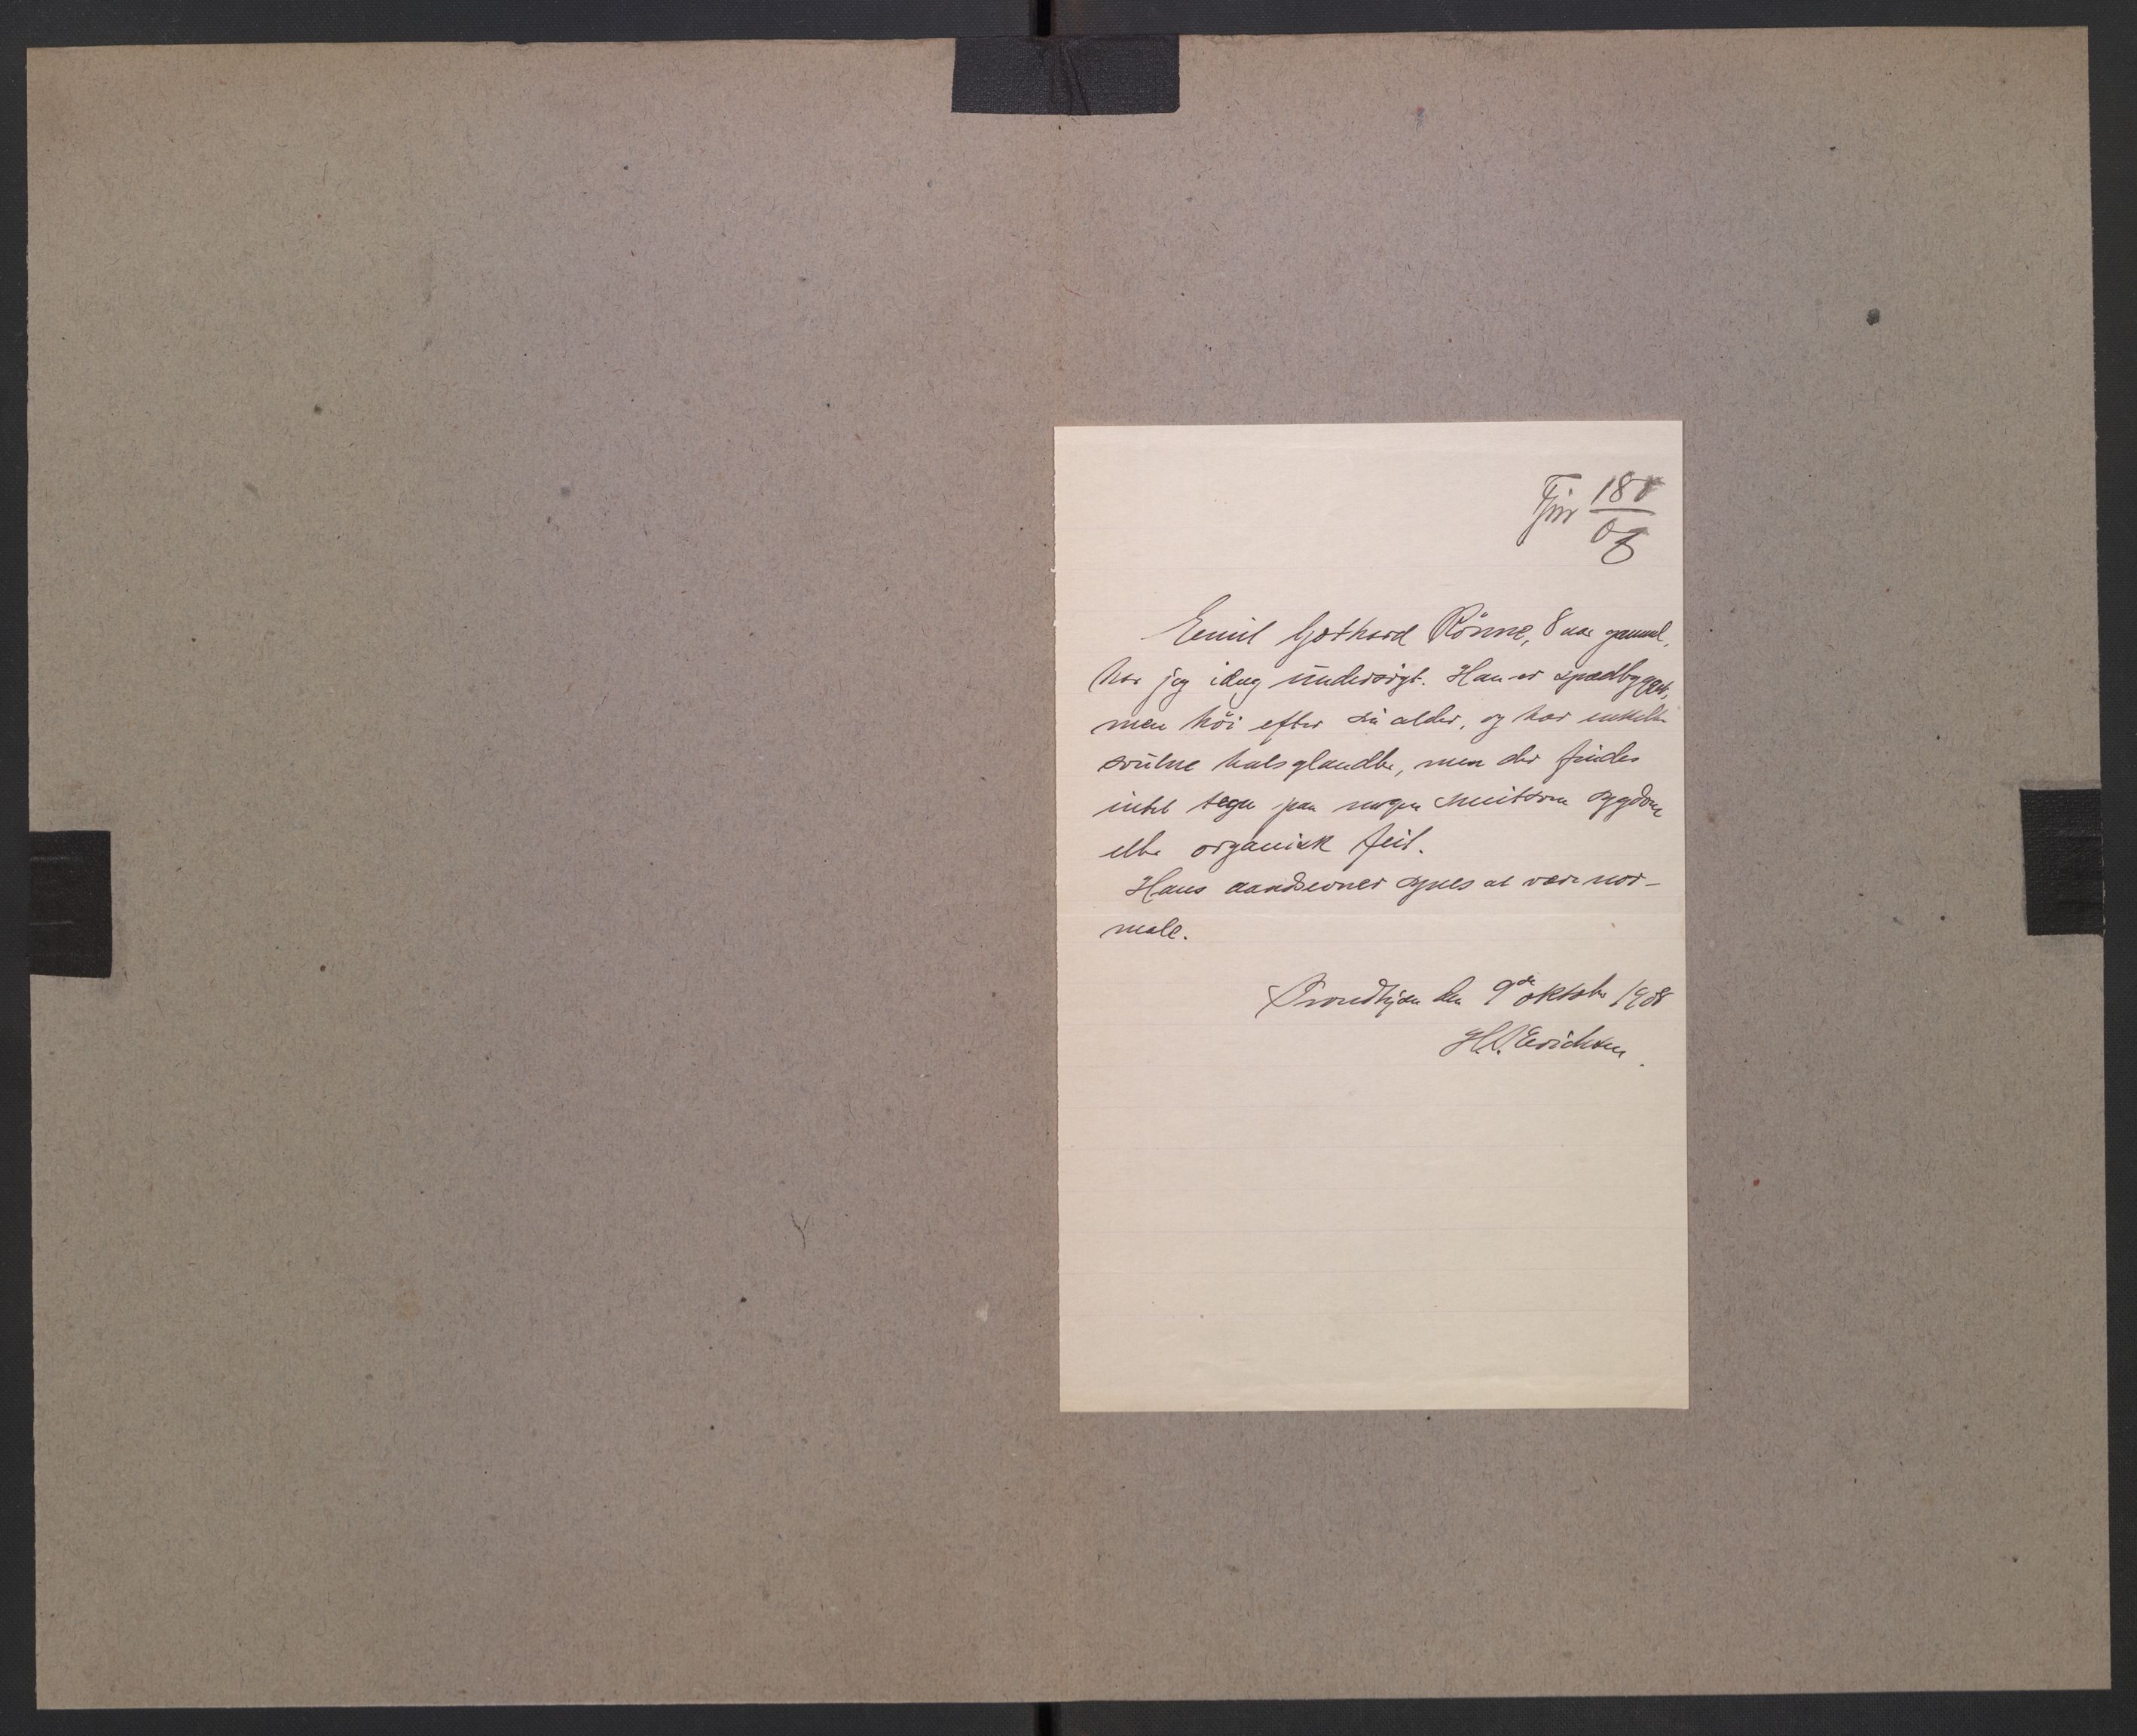 180
08
Emil Gothard Rönne, 8 aar gammel,
har jeg idag undersøgt. Han er spædbygget,
men høi efter sin alder, og har enkelte
svulne halsglandler, men der findes
intet tegn paa nogen smitsom sygdom
eller organisk feil.
Hans aandsevner synes at være nor-
male.
Trondhjem den 9de oktober 1908
Erichsen